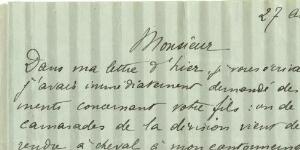 27 a
Monsieur
Dans ma lettre d'hier, je vous écriva
j'avais immédiatement demandé des
ments concernant votre fils : un de
camarades de la division vient de
rendre à cheval à mon cantonnemen